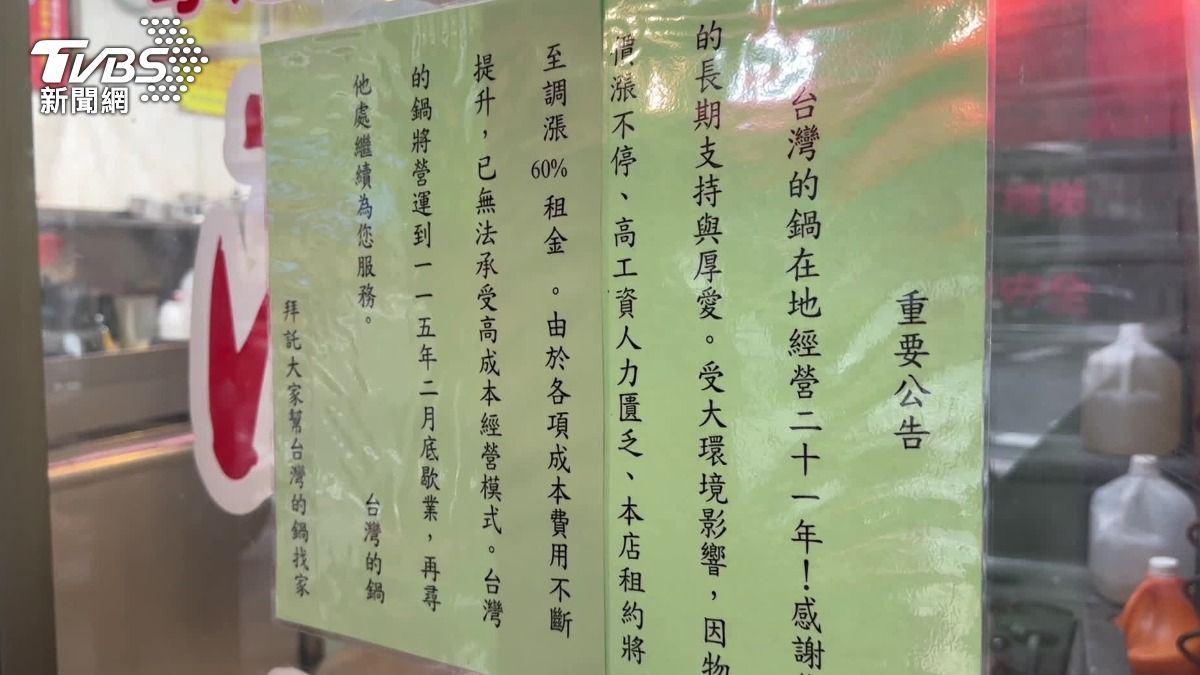 TVBS
新聞網
重要公告
台灣的鍋在地經營二十一年！感謝
的長期支持與厚愛。受大環境影響，因物
價漲不停、高工資人力匱乏、本店租約將
至調漲60%租金。由於各項成本費用不斷
提升，已無法承受高成本經營模式。台灣
的鍋將營運到一一五年二月底歇業，再尋
他處繼續為您服務。
台灣的鍋
拜託大家幫台灣的鍋找家